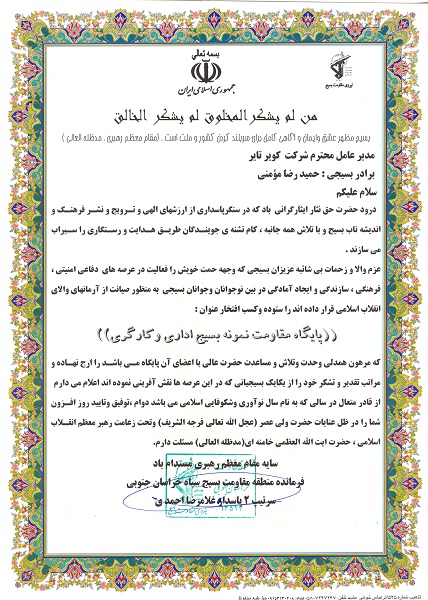 بسمه تعالی
جمهوری اسلامی ایران
نیروی مقاومت بسیج
من لم یشکر المخلوق لم یشکر الخالق
بسیج مظهر عشق وایمان و آگاهی کامل برای سربلند کردن کشور و ملت است . (مقام معظم رهبری . مدظله العالی )
مدیر عامل محترم شرکت کویر تایر
برادر بسیجی : حمید رضا مؤمنی
سلام علیکم
درود حضرت حق نثار ایثارگرانی باد که در سنگرپاسداری از ارزشهای الهی و ترویج و نشر فرهنگ و
اندیشه ناب بسیج و با تلاش همه جانبه ، کام تشنه ی جویندگان طریق هدایت و رستگاری را سیراب
می سازند .
عزم والا و زحمات بی شائبه عزیزان بسیجی که وجهه حمت خویش را فعالیت در عرصه های دفاعی امنیتی ،
فرهنگی ، سازندگی و ایجاد آمادگی در بین نوجوانان وجوانان بسیجی به منظور صیانت از آرمانهای والای
انقلاب اسلامی قرار داده اند را ستوده وکسب افتخار عنوان :
((پایگاه مقاومت نمونه بسیج اداری وکارگری))
که مرهون همدلی وحدت وتلاش و مساعدت حضرت عالی با اعضای آن پایگاه می باشد را ارج نهاده و
مراتب تقدیر و تشکر خود را از یکایک بسیجیانی که در این عرصه ها نقش آفرینی نموده اند اعلام می دارم
از قادر متعال در سالی که به نام سال نوآوری وشکوفایی اسلامی می باشد دوام ،توفیق وتایید روز افزون
شما را در ظل عنایات حضرت ولی عصر (عجل الله تعالی فرجه الشریف) وتحت زعامت رهبر معظم انقلاب
اسلامی ، حضرت ایت الله العظمی خامنه ای(مدظله العالی) مسئلت دارم.
سایه مقام معظم رهبری مستدام باد
فرمانده منطقه مقاومت بسیج سپاه خراسان جنوبی
سرتیپ ۲ پاسدار غلامرضا احمدی